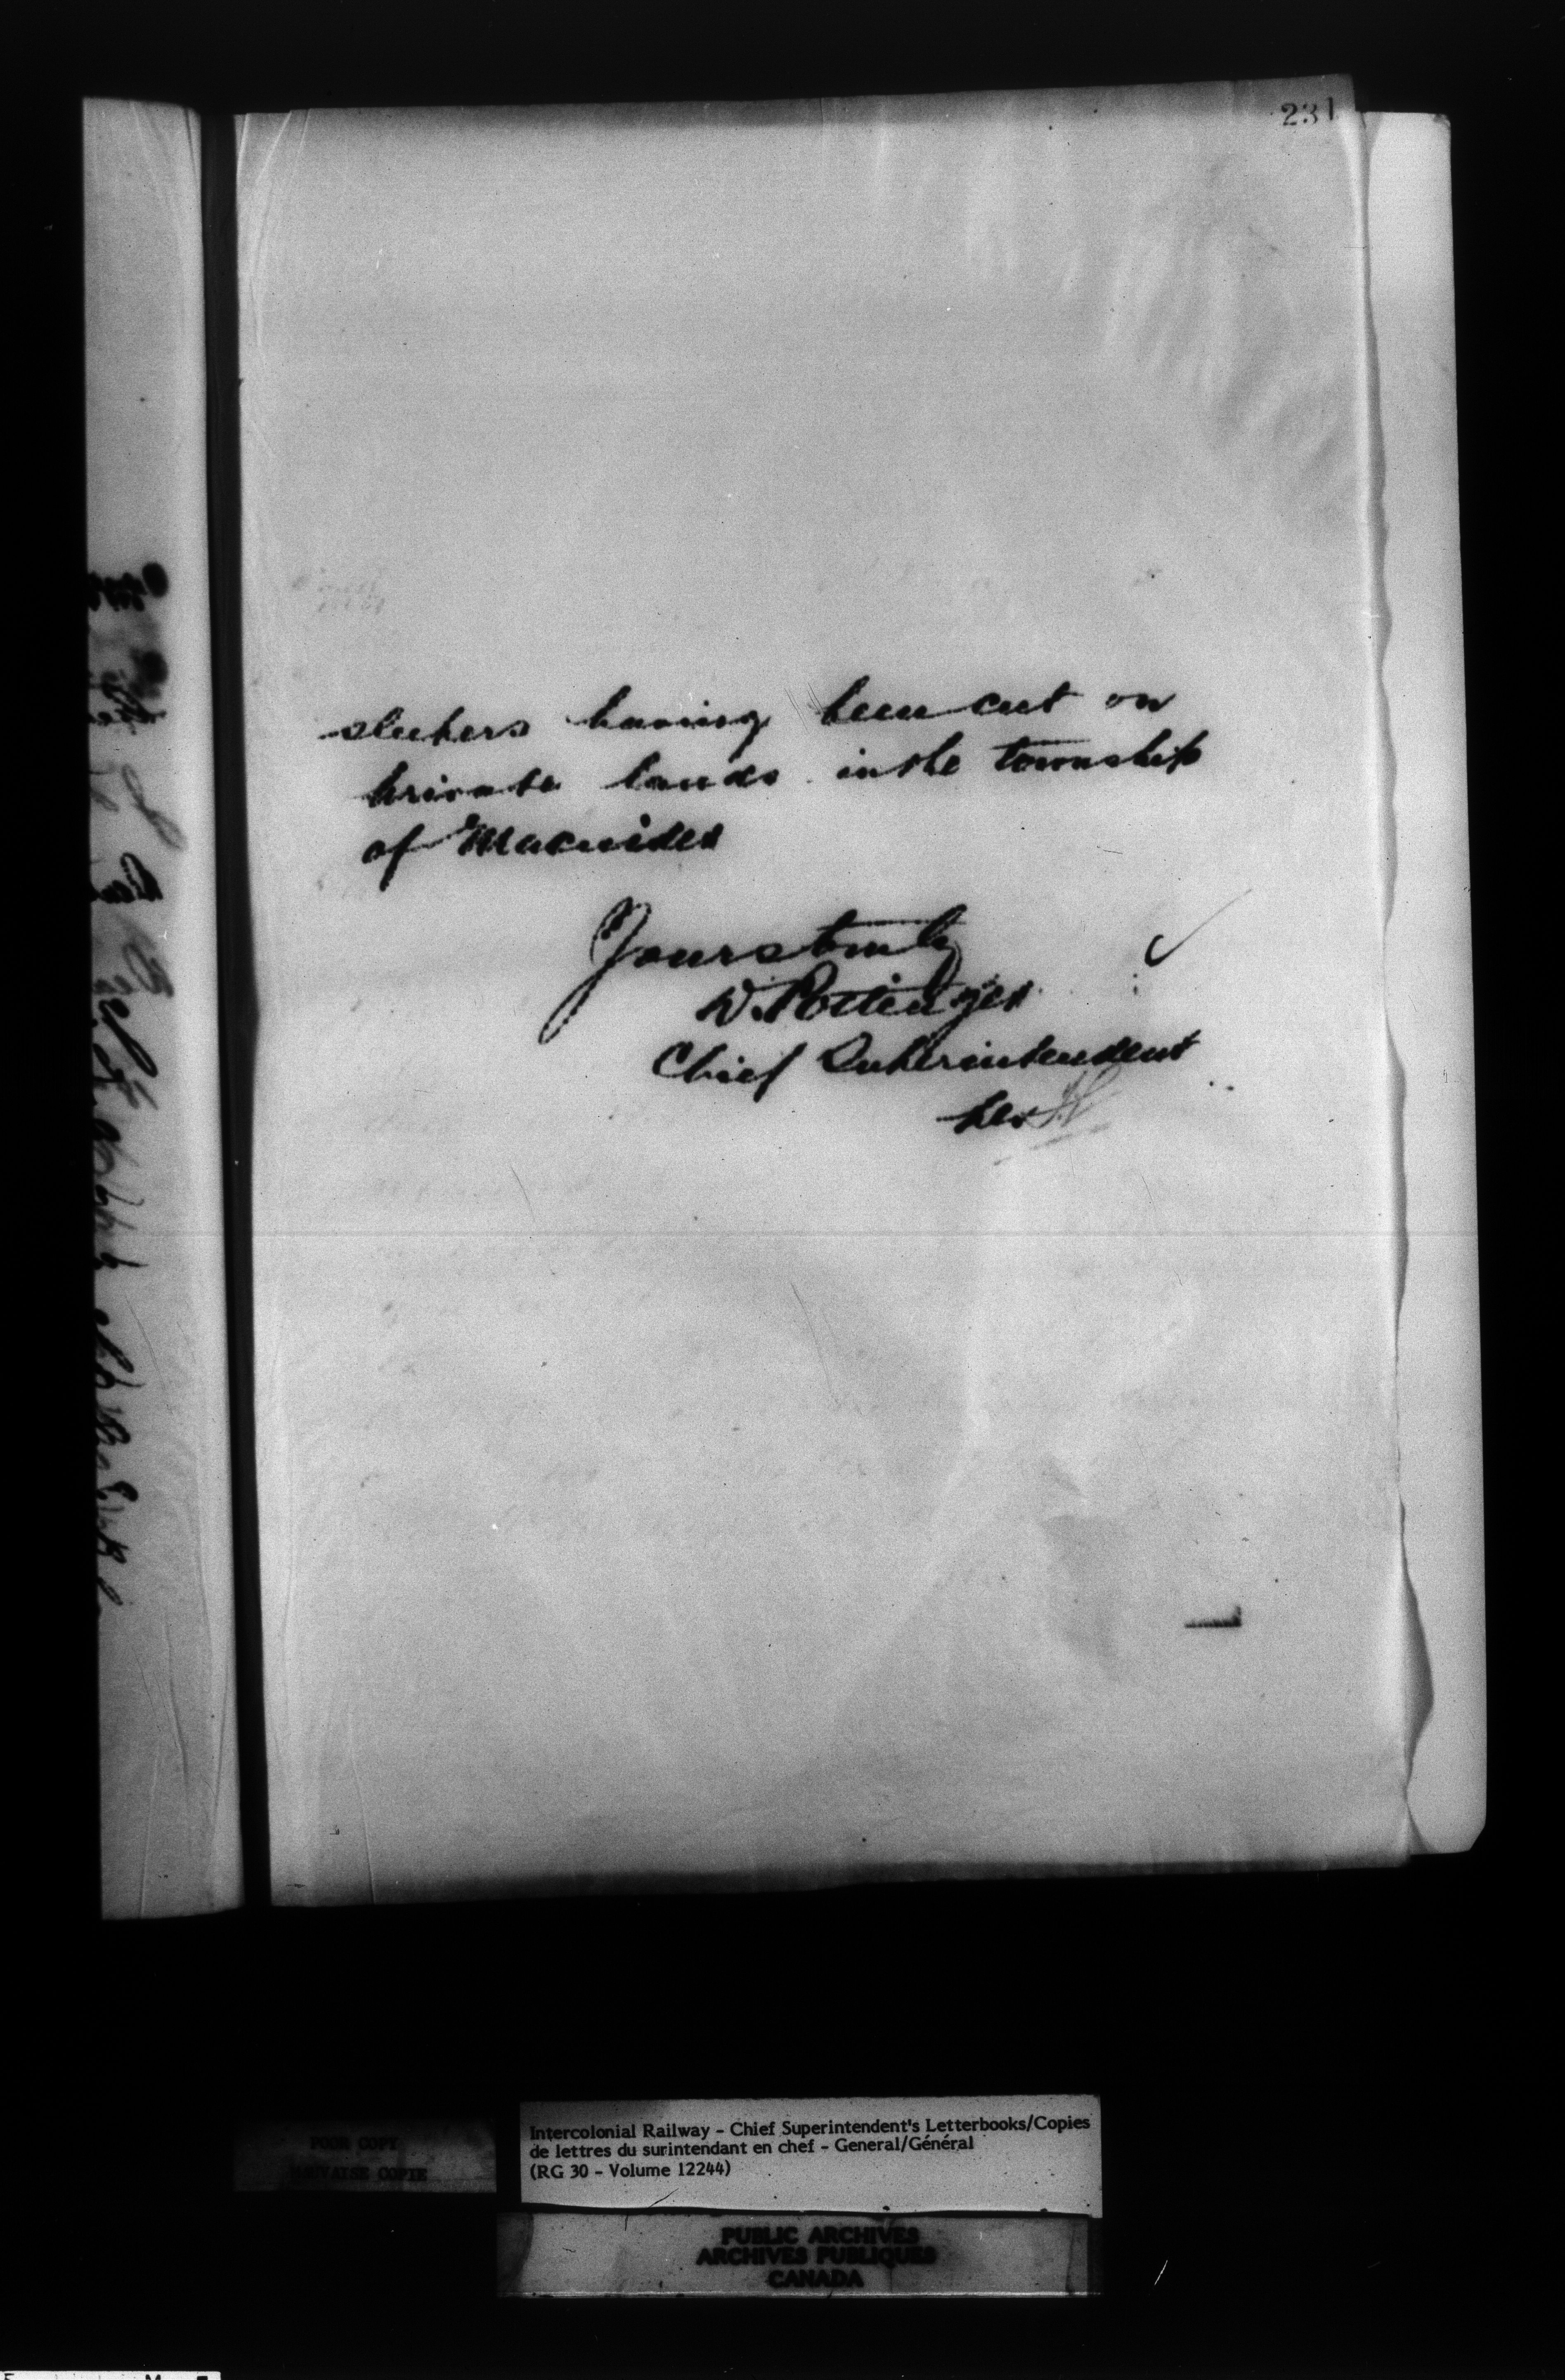 231
sleepers having been cut on
private lands in the township
of Macnider
Yours truly
D. Pottinger
Chief Superintendent
per
POOR COPY
MAUVAISE COPIE
Intercolonial Railway - Chief Superintendent's Letterbooks/Copies
de lettres du surintendant en chef - General/Général
(RG 30 - Volume 12244)
PUBLIC ARCHIVES
ARCHIVES PUBLIQUES
CANADA